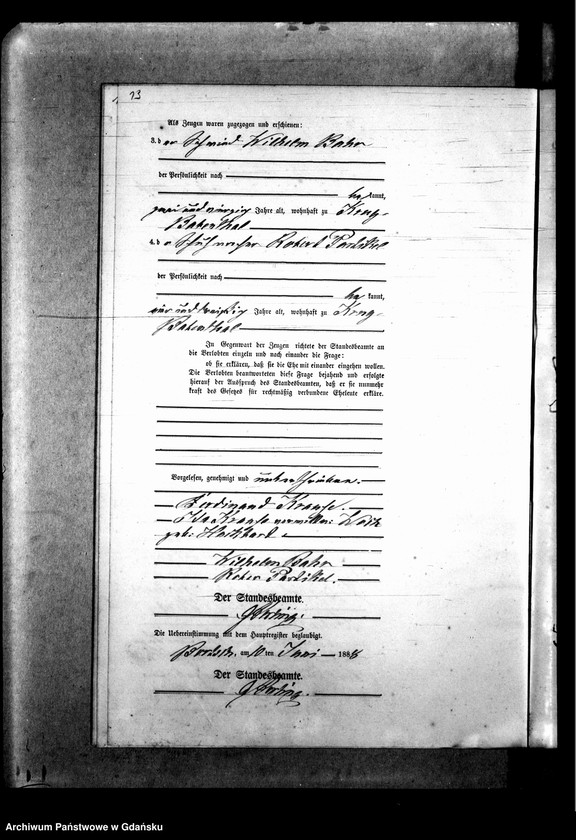 13
Als Zeugen waren zugezogen und erschienen:
3. der Schmied Wilhelm Bahr
der Persönlichkeit nach
be kannt,
zwei und vierzig Jahre alt, wohnhaft zu Krug-
Babenthal
4. der Schuhmacher Robert Pardikel
der Persönlichkeit nach
be kannt,
vier und dreißig Jahre alt, wohnhaft zu Krug-
Babenthal
In Gegenwart der Zeugen richtete der Standesbeamte an
die Verlobten einzeln und nach einander die Frage:
ob sie erklären, daß sie die Ehe mit einander eingehen wollen.
Die Verlobten beantworteten diese Frage bejahend und erfolgte
hierauf der Ausspruch des Standesbeamten, daß er sie nunmehr
kraft des Gesetzes für rechtmäßig verbundene Eheleute erkläre.
Vorgelesen, genehmigt und unterschrieben.
Ferdinand Krause.
Ida Krause verwittw:
geb:
Wilhelm Bahr
Robert Pardikel.
Der Standesbeamte.
Die Uebereinstimmung mit dem Hauptregister beglaubigt.
am 10 ten Juni 1888
Der Standesbeamte.
Archiwum Państwowe w Gdańsku